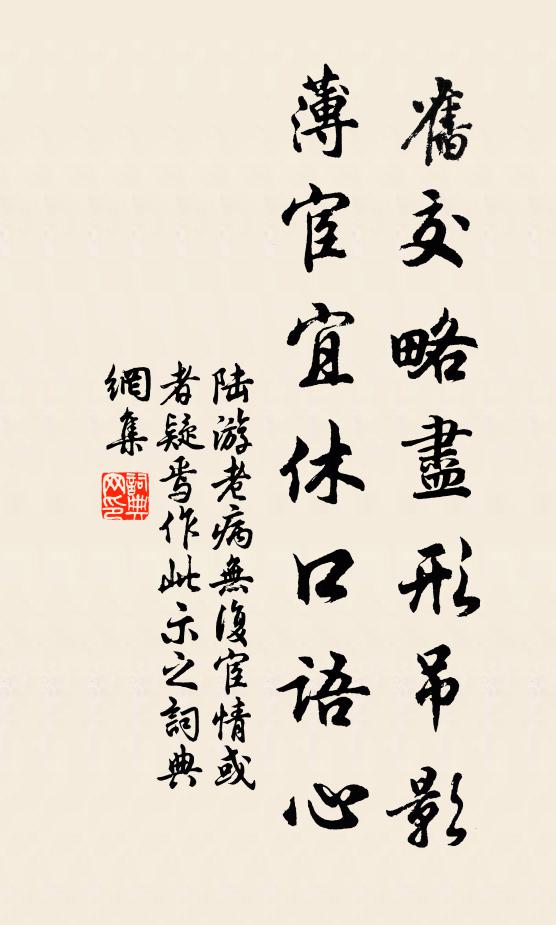 舊交略盡形吊影
薄宦宜休口語心
陸游老病無復宦情或
者疑焉作此示之詞典
網集
詞典
网印